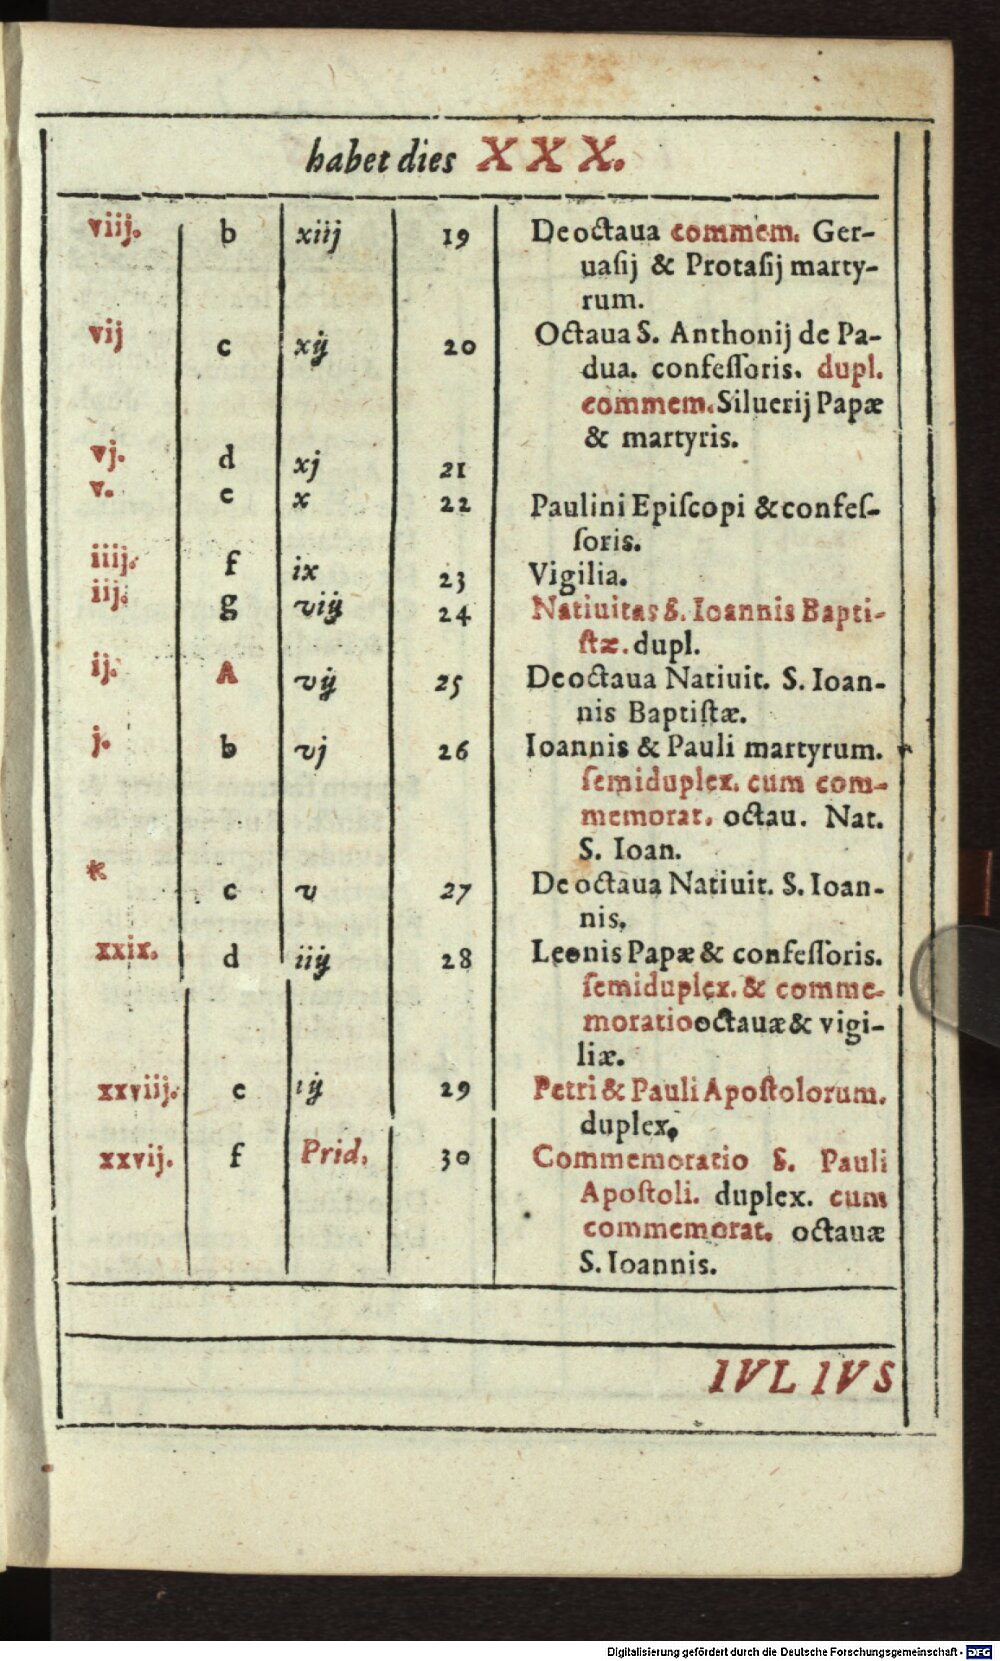 habet dies XXX.
viij. b xiij 19 De octaua commem. Ger-
uasij & Protasij marty-
rum.
vij c xij 20 Octaua S. Anthonij de Pa-
dua. confessoris. dupl.
commem. Siluerij Papæ
& martyris.
vj. d xj 21
v. e x 22 Paulini Episcopi & confes-
soris.
iiij. f ix 23 Vigilia.
iij. g viij 24 Natiuitas S. Ioannis Bapti-
stæ. dupl.
ij. A vij 25 De octaua Natiuit. S. Ioan-
nis Baptistæ.
j. b vj 26 Ioannis & Pauli martyrum.
semiduplex. cum com-
memorat. octau. Nat.
S. Ioan.
* c v 27 De octaua Natiuit. S. Ioan-
nis.
xxix. d iiij 28 Leonis Papæ & confessoris.
semiduplex. & comme-
moratio octauæ & vigi-
liæ.
xxviij. e iij 29 Petri & Pauli Apostolorum.
duplex.
xxvij. f Prid. 30 Commemoratio S. Pauli
Apostoli. duplex. cum
commemorat. octauæ
S. Ioannis.
IVLIVS
Digitalisierung gefördert durch die Deutsche Forschungsgemeinschaft - DFG